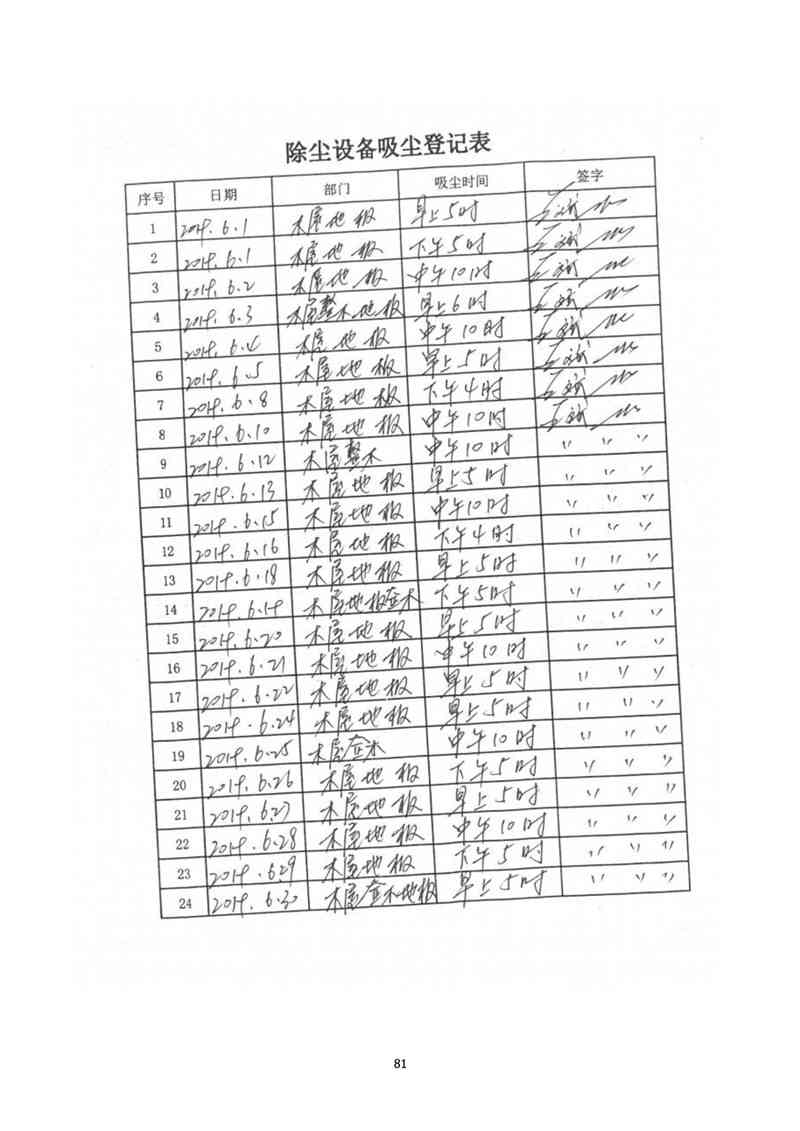 除尘设备吸尘登记表
序号 日期 部门 吸尘时间 签字
1 2019.6.1 木屋地板 早上5时
2 2019.6.1 木屋地板 下午5时
3 2019.6.2 木屋地板 中午10时
4 2019.6.3 木屋整木地板 早上6时
5 2019.6.4 木屋地板 中午10时
6 2019.6.5 木屋地板 早上5时
7 2019.6.8 木屋地板 下午4时
8 2019.6.10 木屋地板 中午10时
9 2019.6.12 木屋整木 中午10时 〃 〃 〃
10 2019.6.13 木屋地板 早上5时 〃 〃 〃
11 2019.6.15 木屋地板 中午10时 〃 〃 〃
12 2019.6.16 木屋地板 下午4时 〃 〃 〃
13 2019.6.18 木屋地板 早上5时 〃 〃 〃
14 2019.6.19 木屋地板 木 下午5时 〃 〃 〃
15 2019.6.20 木屋地板 早上5时 〃 〃 〃
16 2019.6.21 木屋地板 中午10时 〃 〃 〃
17 2019.6.22 木屋地板 早上5时 〃 〃 〃
18 2019.6.24 木屋地板 早上5时 〃 〃 〃
19 2019.6.25 木屋 木 中午10时 〃 〃 〃
20 2019.6.26 木屋地板 下午5时 〃 〃 〃
21 2019.6.27 木屋地板 早上5时 〃 〃 〃
22 2019.6.28 木屋地板 中午10时 〃 〃 〃
23 2019.6.29 木屋地板 下午5时 〃 〃 〃
24 2019.6.30 木屋 木地板 早上5时 〃 〃 〃
81